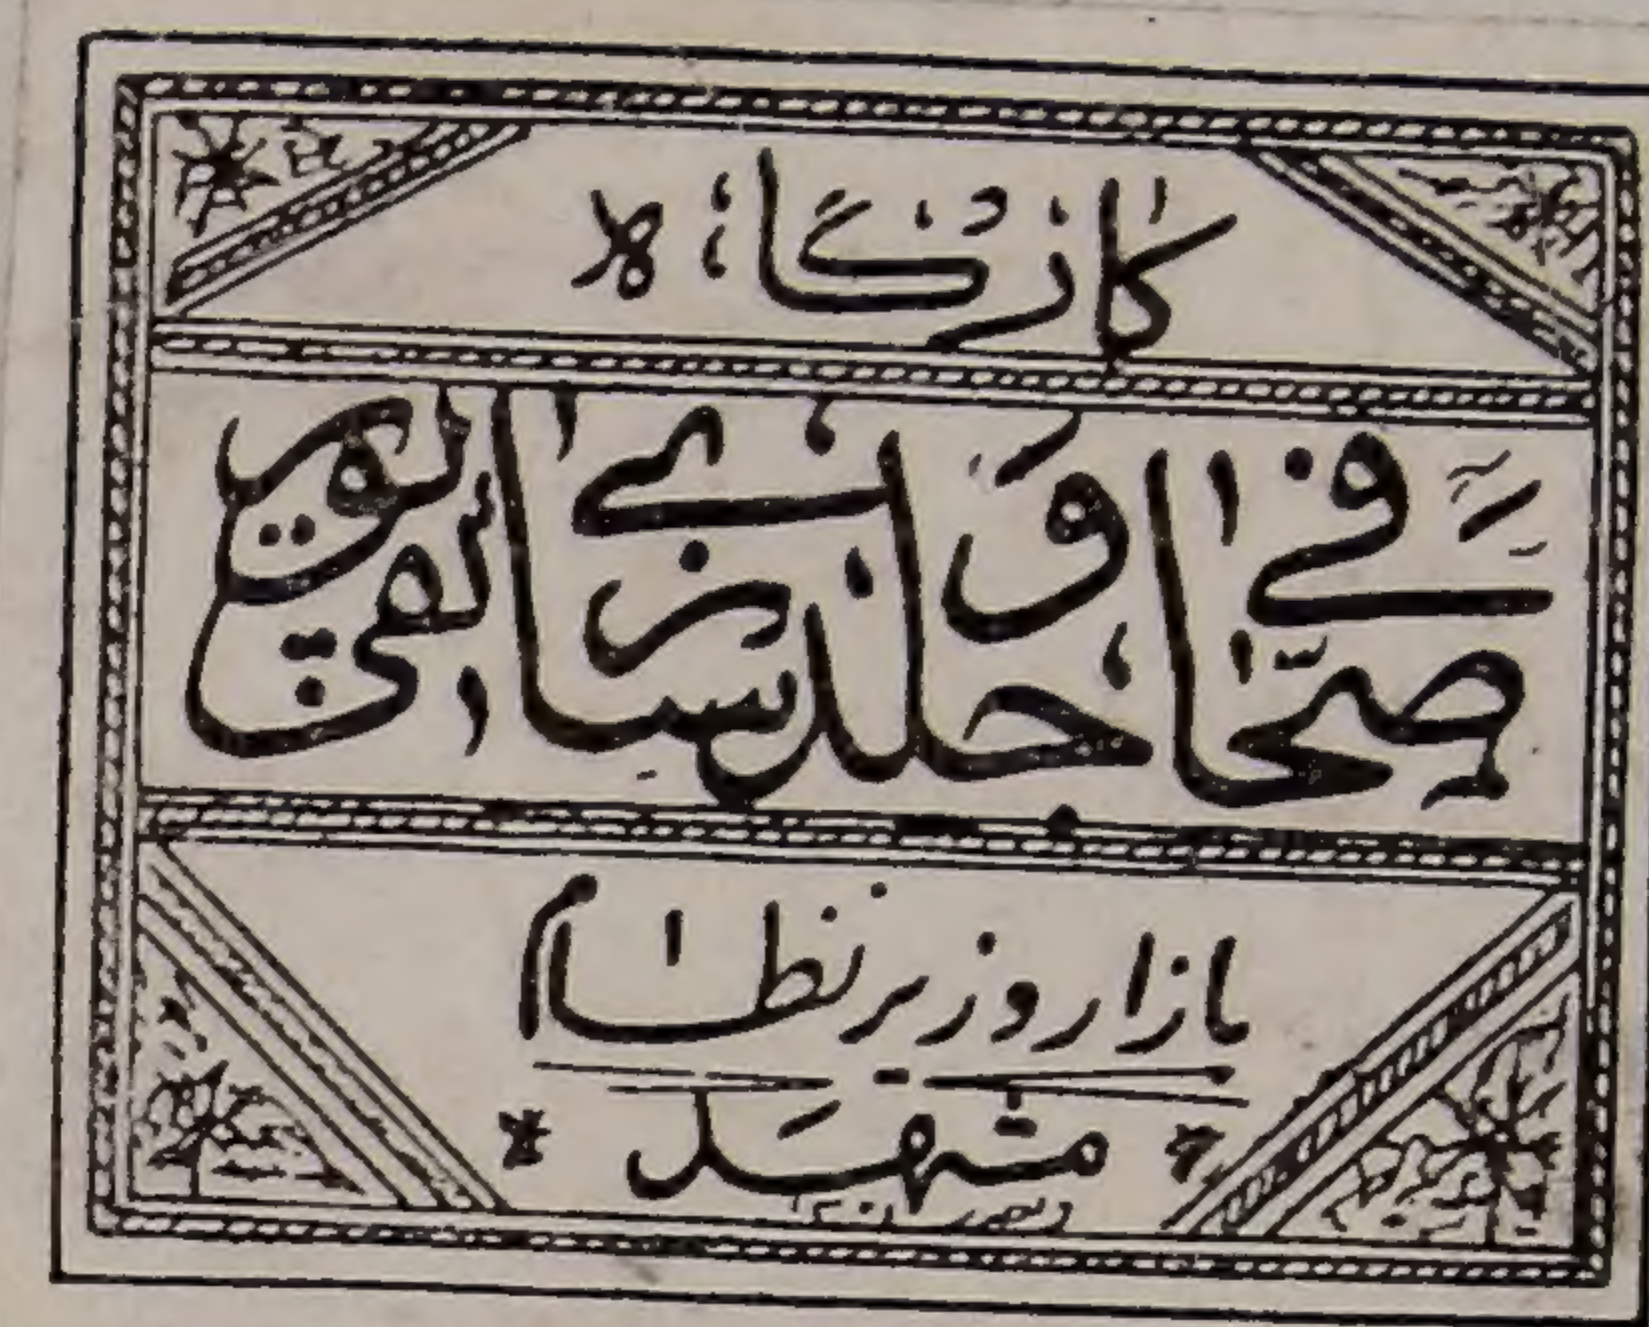 کارگاه
صحافی و جلدسازی تقی تقوی
بازار وزیر نظام
مشهد